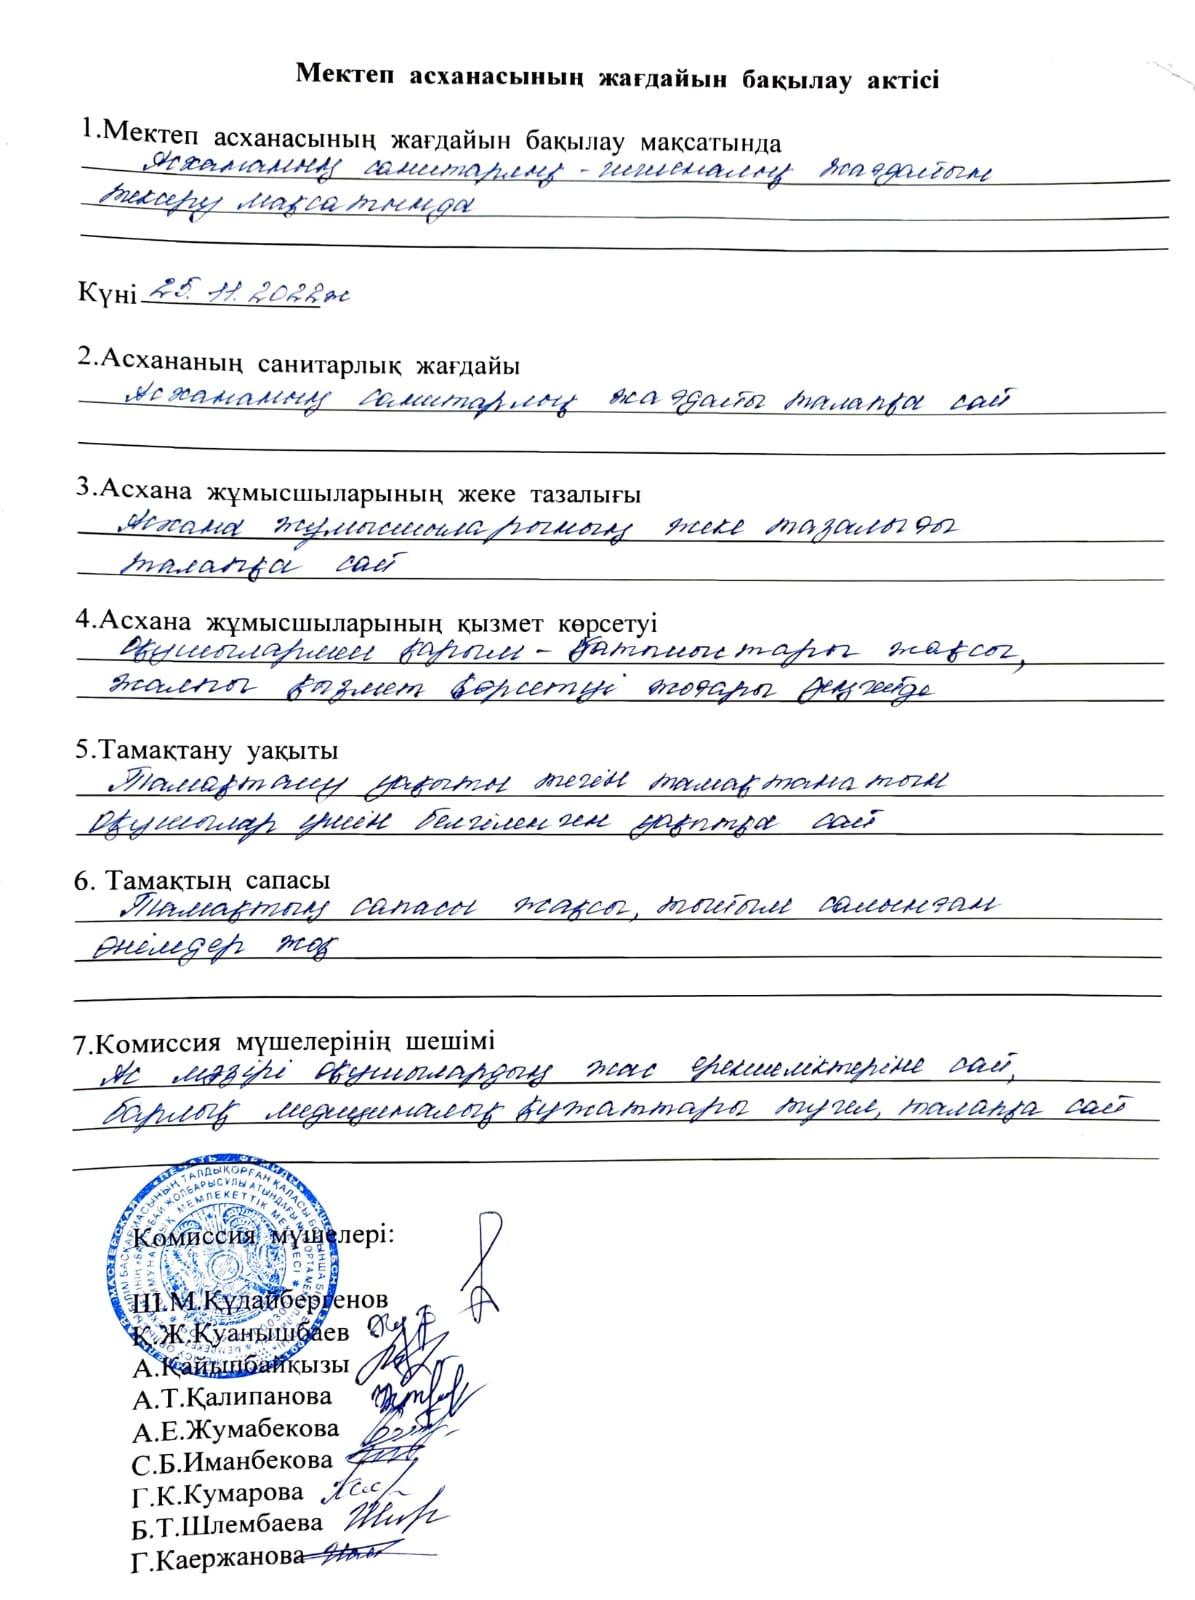 Мектеп асханасының жағдайын бақылау актісі
1.Мектеп асханасының жағдайын бақылау мақсатында
Асхананың санитарлық - гигиеналық жағдайын
тексеру мақсатында
Күні 25.11.2022ж
2.Асхананың санитарлық жағдайы
Асхананың санитарлық жағдайы талапқа сай
3.Асхана жұмысшыларының жеке тазалығы
Асхана жұмысшыларының жеке тазалығы
талапқа сай
4.Асхана жұмысшыларының қызмет көрсетуі
Оқушылармен қарым - қатыныстары жақсы,
жалпы қызмет көрсетуі жоғары деңгейде
5.Тамақтану уақыты
Тамақтану уақыты тегін тамақтанатын
оқушылар үшін белгіленген уақытқа сай
6. Тамақтың сапасы
Тамақтың сапасы жақсы, тыйым салынған
өнімдер жоқ
7.Комиссия мүшелерінің шешімі
Ас мәзірі оқушылардың жас ерекшеліктеріне сай,
барлық медициналық құжаттары түгел, талапқа сай
Комиссия мүшелері:
Ш.М.Құдайбергенов
Қ.Ж.Қуанышбаев
А.Қайыпбайқызы
А.Т.Қалипанова
А.Е.Жумабекова
С.Б.Иманбекова
Г.К.Кумарова
Б.Т.Шлембаева
Г.Каержанова